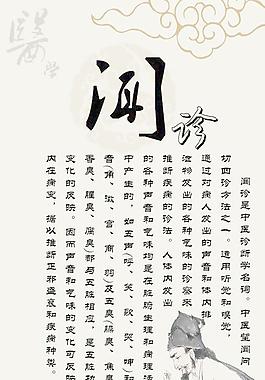 醫学
闻诊
闻诊是中医诊断学名词。中医望闻问
切四诊方法之一。运用听觉和嗅觉,
通过对病人发出的声音和体内排
泄物发出的各种气味的诊察来
推断疾病的诊法。人体内发出
的各种声音和气味均是在脏腑生理和病理活
中产生的,如五声(呼、笑、歌、哭、呻)和
音(角、徵、宫、商、羽)及五臭(臊臭、焦臭
香臭、腥臭、腐臭)都与五脏相应,是五脏功
变化的反映。因而声音和气味的变化可反映
内在病变,据以推断正邪盛衰和疾病种类。